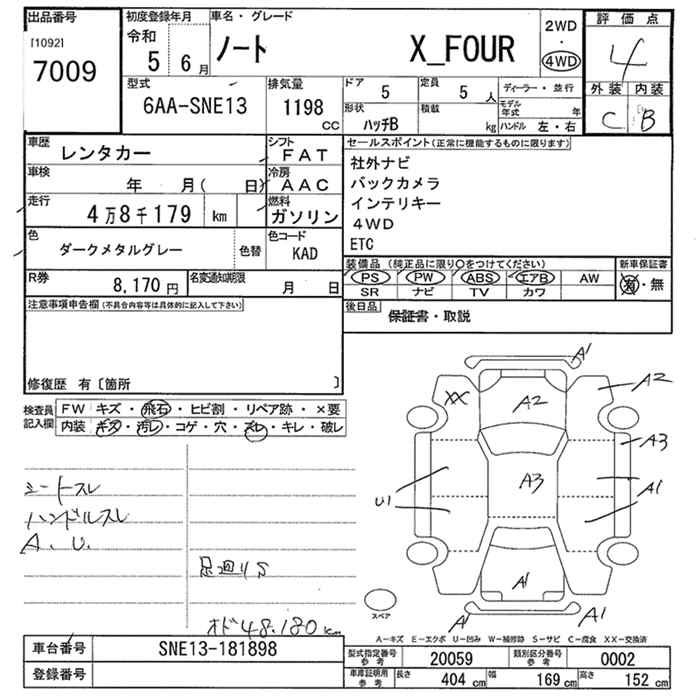 出品番号
[1092]
7009
初度登録年月
令和
5 6月
車名・グレード
ノート X_FOUR
2WD
・
4WD
評価点
4
外装 内装
C B
型式
6AA-SNE13
排気量
1198
CC
ドア 5
定員 5 人
形状 ハッチB
積載 kg
ディーラー・並行
モデル年式 年
ハンドル 左・右
車歴 レンタカー
シフト FAT
車検 年 月( 日)
冷房 AAC
走行 4万8千179 km
燃料 ガソリン
色 ダークメタルグレー 色替
色コード KAD
R券 8,170円
名変通知期限 月 日
セールスポイント(正常に機能するものに限ります)
社外ナビ
バックカメラ
インテリキー
4WD
ETC
装備品(純正品に限り○をつけてください)
PS PW ABS エアB AW
SR ナビ TV カワ
新車保証書
有・無
後日品 保証書・取説
注意事項申告欄(不具合内容等は具体的に記入して下さい)
修復歴 有〔箇所 〕
検査員記入欄
FW キズ・飛石・ヒビ割・リペア跡・×要
内装 キズ・汚レ・コゲ・穴・スレ・キレ・破レ
シートスレ
ハンドルスレ
A.U.
足廻りS
オド48,180km
A1
A2
XX
A2
A3
A3
A1
U1
A1
A1
A1
スペア
A-キズ E-エクボ U-凹み W-補修跡 S-サビ C-腐食 XX-交換済
車台番号 SNE13-181898
登録番号
型式指定番号 参考 20059
類別区分番号 参考 0002
車庫証明用 参考 長さ 404cm 幅 169cm 高さ 152cm